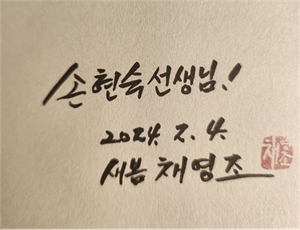 손현숙 선생님!
2024. 2. 4.
새봄 채영조